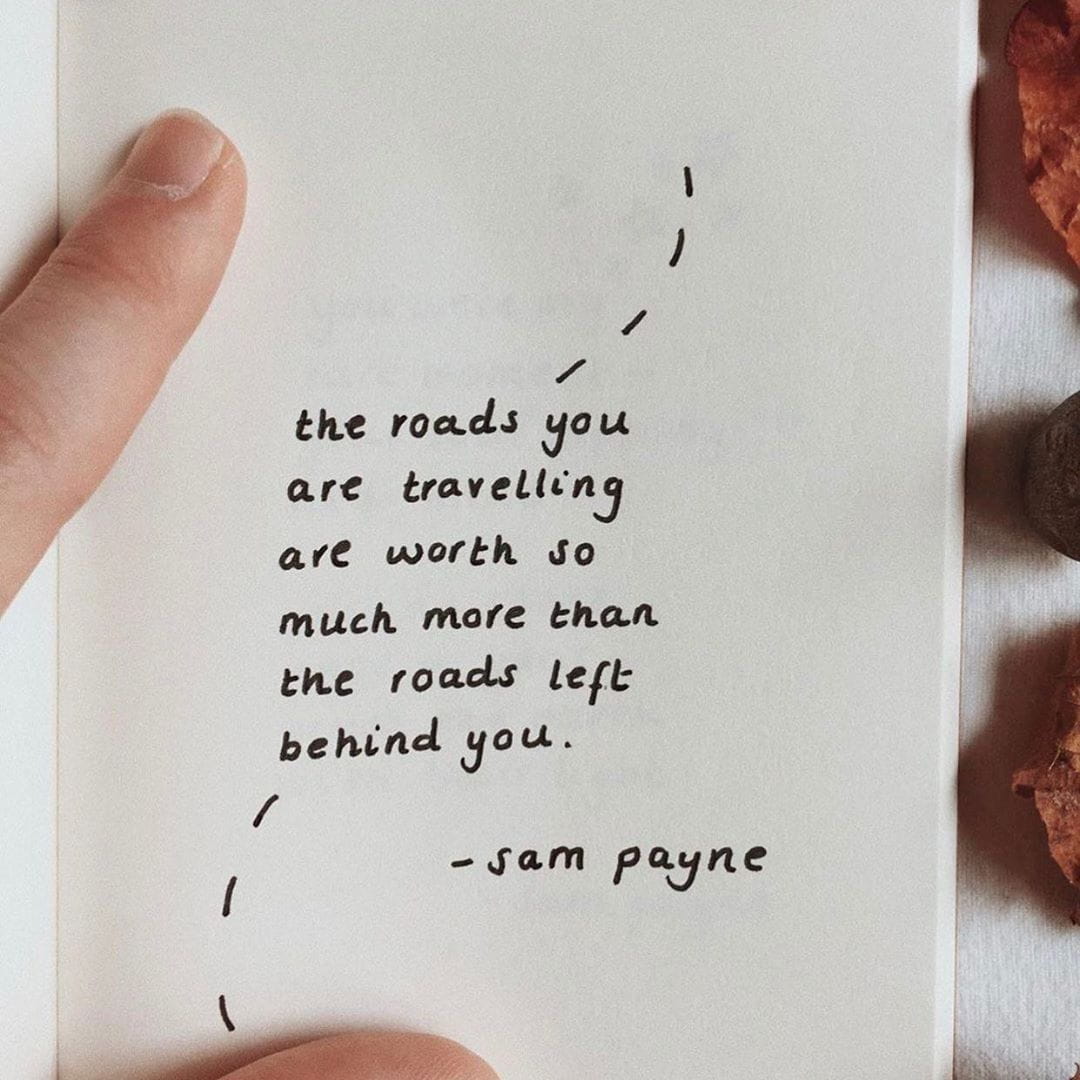 the roads you
are travelling
are worth so
much more than
the roads left
behind you.
- sam payne